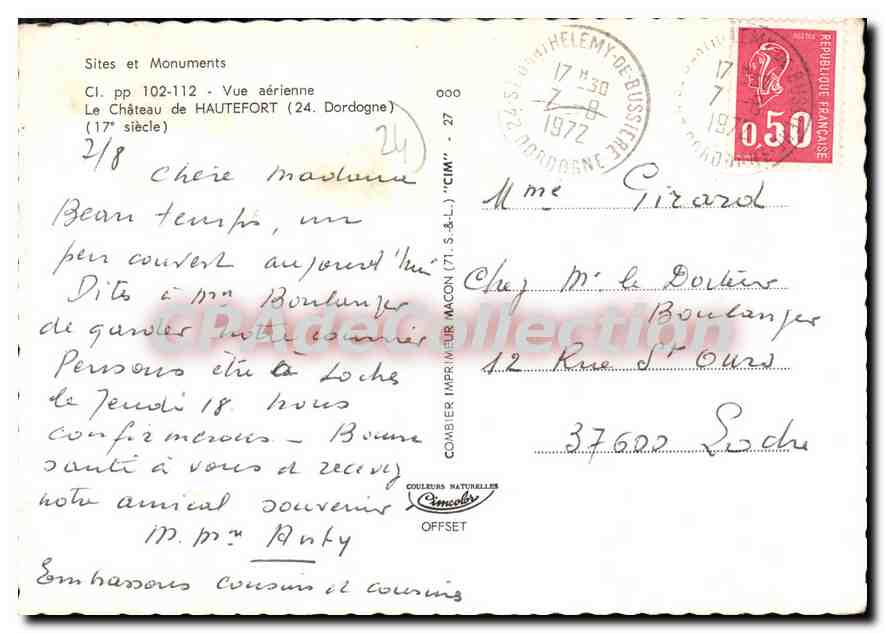 Sites et Monuments
Cl. pp 102-112 - Vue aérienne
Le Château de HAUTEFORT (24. Dordogne)
(17e siècle)
24
7/8
Chère Madame
Beau temps, un
peu couvert aujourd'hui
Dites à Mme Boulanger
de garder notre courrier
Pensons être à Loches
le Jeudi 18. nous
confirmerons - Bonne
santé à vous et recevez
notre amical souvenir
M. Mme
Embrassons cousins et cousine
COMBIER IMPRIMEUR MACON (71. S.-&-L.) "CIM" - 27 000
COULEURS NATURELLES
Cimcolor
OFFSET
24 ST BARTHELEMY-DE-BUSSIERE
17 H 30
7-8
1972
DORDOGNE
REPUBLIQUE FRANÇAISE
POSTES
0,50
Mme Girard
Chez Mr le Docteur
Boulanger
12 Rue St Ours
37600 Loche
CPAdeCollection